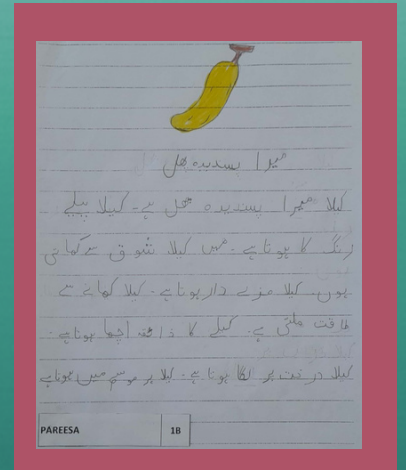 میرا پسندیدہ پھل
کیلا میرا پسندیدہ پھل ہے۔ کیلا پیلے
رنگ کا ہوتا ہے۔ میں کیلا شوق سے کھاتی
ہوں۔ کیلا مزے دار ہوتا ہے۔ کیلا کھانے سے
طاقت ملتی ہے۔ کیلے کا ذائقہ اچھا ہوتا ہے۔
کیلا درخت پر لگا ہوتا ہے۔ کیلا ہر موسم میں ہوتا ہے
PAREESA 1B